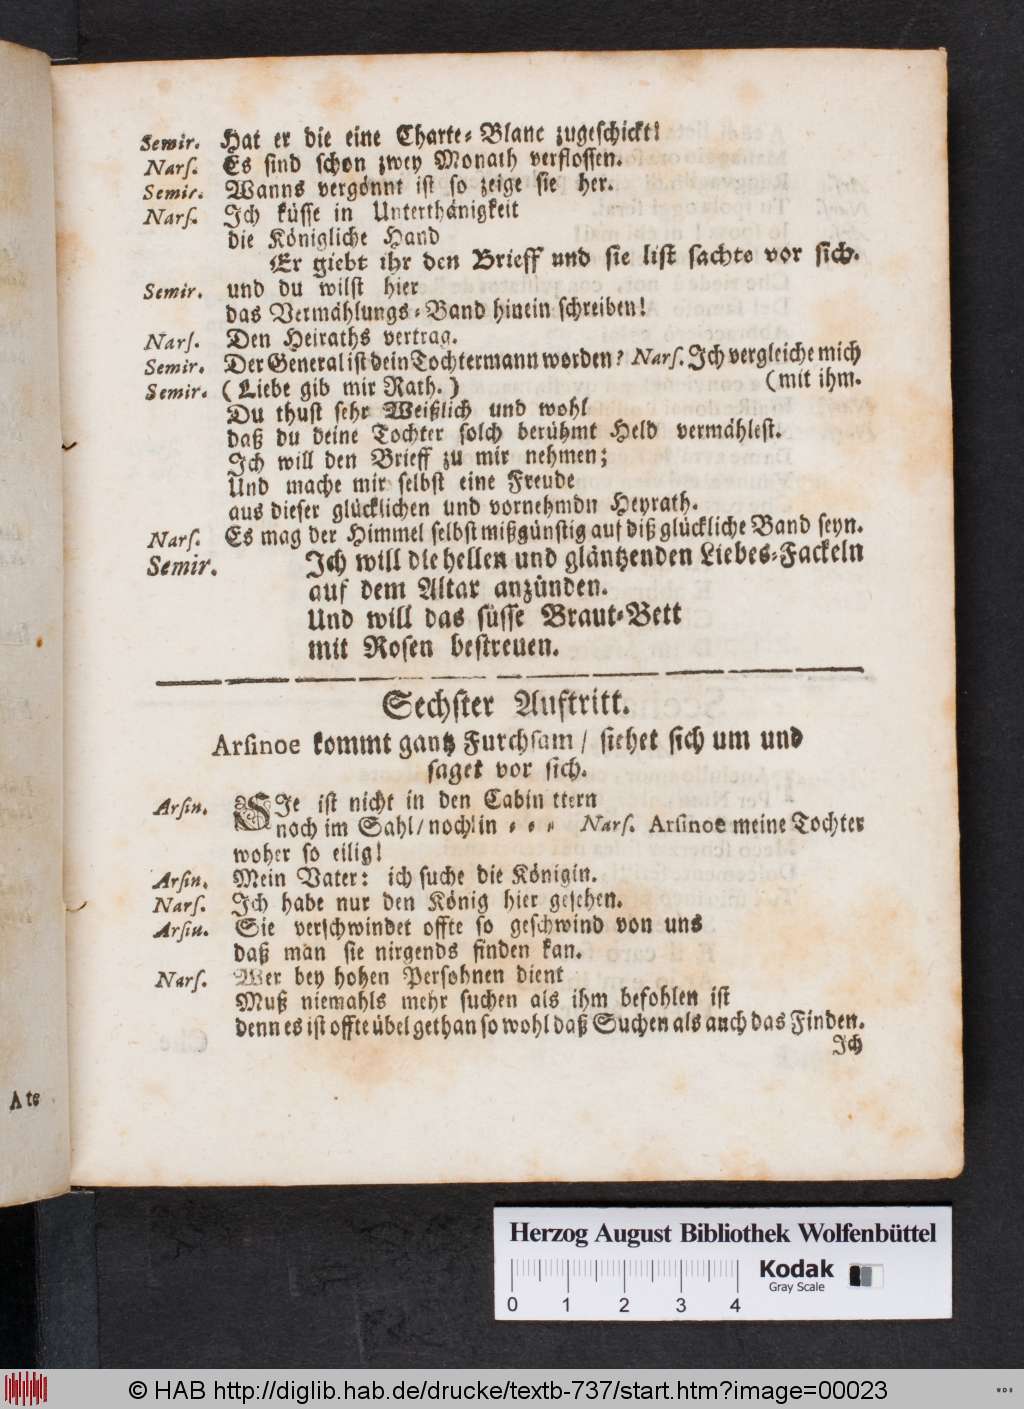 Semir. Hat er die eine Charte-Blanc zugeschickt!
Narſ. Es sind schon zwey Monath verflossen.
Semir. Wanns vergönnt ist so zeige sie her.
Narſ. Ich küsse in Unterthänigkeit
die Königliche Hand
Er giebt ihr den Brieff und sie list sachte vor sich.
Semir. und du wilst hier
das Vermählungs-Band hinein schreiben!
Narſ. Den Heiraths vertrag.
Semir. Der General ist dein Tochtermann worden? Narſ. Ich vergleiche mich
Semir. (Liebe gib mir Rath.) (mit ihm.
Du thust sehr Weißlich und wohl
daß du deine Tochter solch berühmt Held vermählest.
Ich will den Brieff zu mir nehmen;
Und mache mir selbst eine Freude
aus dieser glücklichen und vornehmdn Heyrath.
Narſ. Es mag der Himmel selbst mißgünstig auf diß glückliche Band seyn.
Semir. Ich will die hellen und gläntzenden Liebes-Fackeln
auf dem Altar anzünden.
Und will das süsse Braut-Bett
mit Rosen bestreuen.
Sechster Auftritt.
Arſinoe kommt gantz Furchsam / siehet sich um und
saget vor sich.
Arſin. SIe ist nicht in den Cabin ttern
noch im Sahl / noch in - - - Narſ. Arſinoe meine Tochter
woher so eilig!
Arſin. Mein Vater: ich suche die Königin.
Narſ. Ich habe nur den König hier gesehen.
Arſin. Sie verschwindet offte so geschwind von uns
daß man sie nirgends finden kan.
Narſ. Wer bey hohen Persohnen dient
Muß niemahls mehr suchen als ihm befohlen ist
denn es ist offte übel gethan so wohl daß Suchen als auch das Finden.
Ich
A te
Herzog August Bibliothek Wolfenbüttel
Kodak
Gray Scale
0 1 2 3 4
© HAB http://diglib.hab.de/drucke/textb-737/start.htm?image=00023